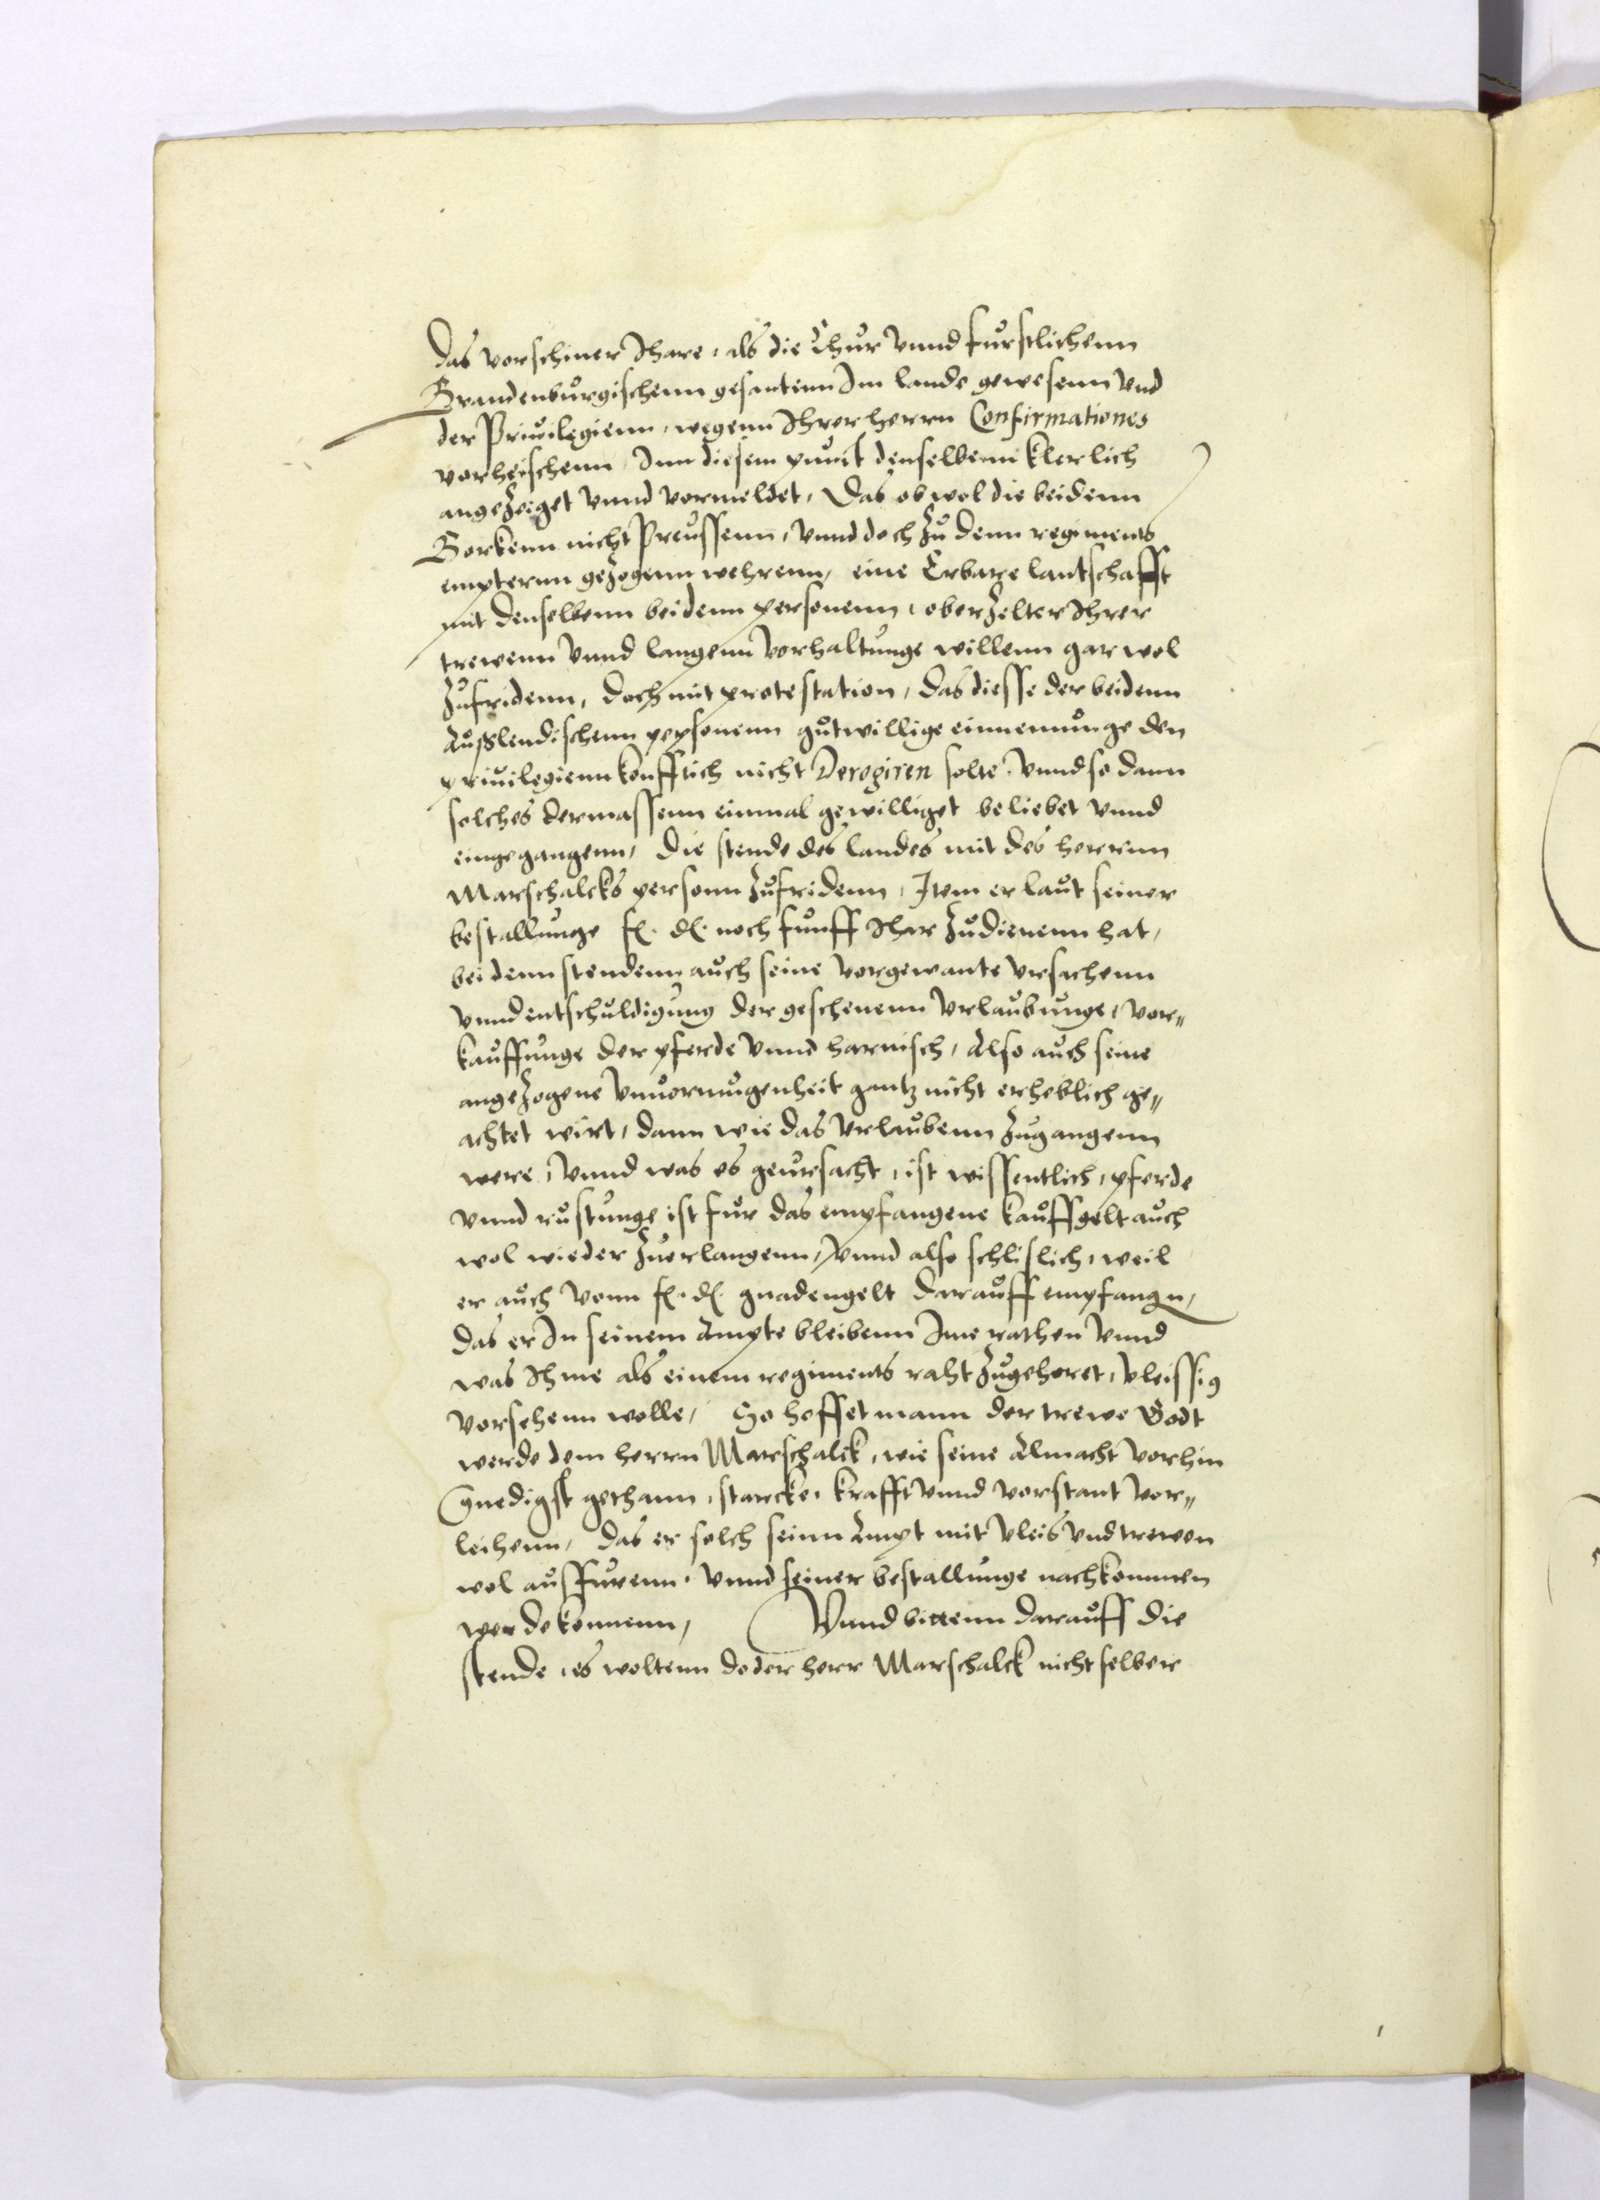 Das vorschiner Ihare, als die Chur vnnd furstlichenn
Brandenburgischenn gesantenn Im lande gewesenn vnd
der Priuilegienn, wegenn Ihrer herrn Confirmationes
vorheischenn, Inn diesem punct denselbenn klerlich
angezeiget vnnd vormeldet, Das ob wol die beidenn
Borkenn nicht Preussenn, vnnd doch zu denn regiments
empternn gezogenn wehrenn, eine Erbare lantschafft
mit denselbenn beidenn personenn, oberzelter Ihrer
trewenn vnnd langenn vorhaltunge willenn gar wol
zufridenn, doch mit protestation, das diesse der beidenn
Außlendischenn personenn gutwillige einnemunge den
priuilegienn konfftich nicht Derogiren solte, vnnd so dann
solches dermassenn einmal gewilliget beliebet vnnd
eingegangenn, Die stende des landes mit des herrnn
Marschalcks personn zufridenn, Item er laut seiner
bestallunge f. d. noch funff Ihar zudienenn hat,
bei denn stendenn auch seine vorgewante vrsachenn
vnnd entschuldigung der geschenenn vrlaubunge, vor„
kauffunge der pferde vnnd harnisch, Also auch seine
angezogene vnuormugenheit gantz nicht erheblich ge„
achtet wirt, dann wie das vrlaubenn zugangenn
were, vnnd was es geursacht, ist wissentlich, pferde
vnnd rustunge ist fur das empfangene kauffgelt auch
wol wieder zuerlangenn, vnnd also schlislich, weil
er auch vonn f. d. gnadengelt darauff empfangn,
das er In seinem Ampte bleibenn Ime rathen vnnd
was Ihme als einem regiments raht zugehoret, vleissig
vorsehenn wolle, So hoffet mann der trewe Godt
werde dem herrn Marschalck, wie seine Almacht vorhin
gnedigst gethann, starcke, krafft vnnd vorstant vor„
leihenn, das er solch seinn Ampt mit vleis vnd trewen
wol aussfurenn, vnnd seiner bestallunge nachkommen
werde konnenn, Vnnd bittenn darauff die
stende, es woltenn do der herr Marschalck nicht selber